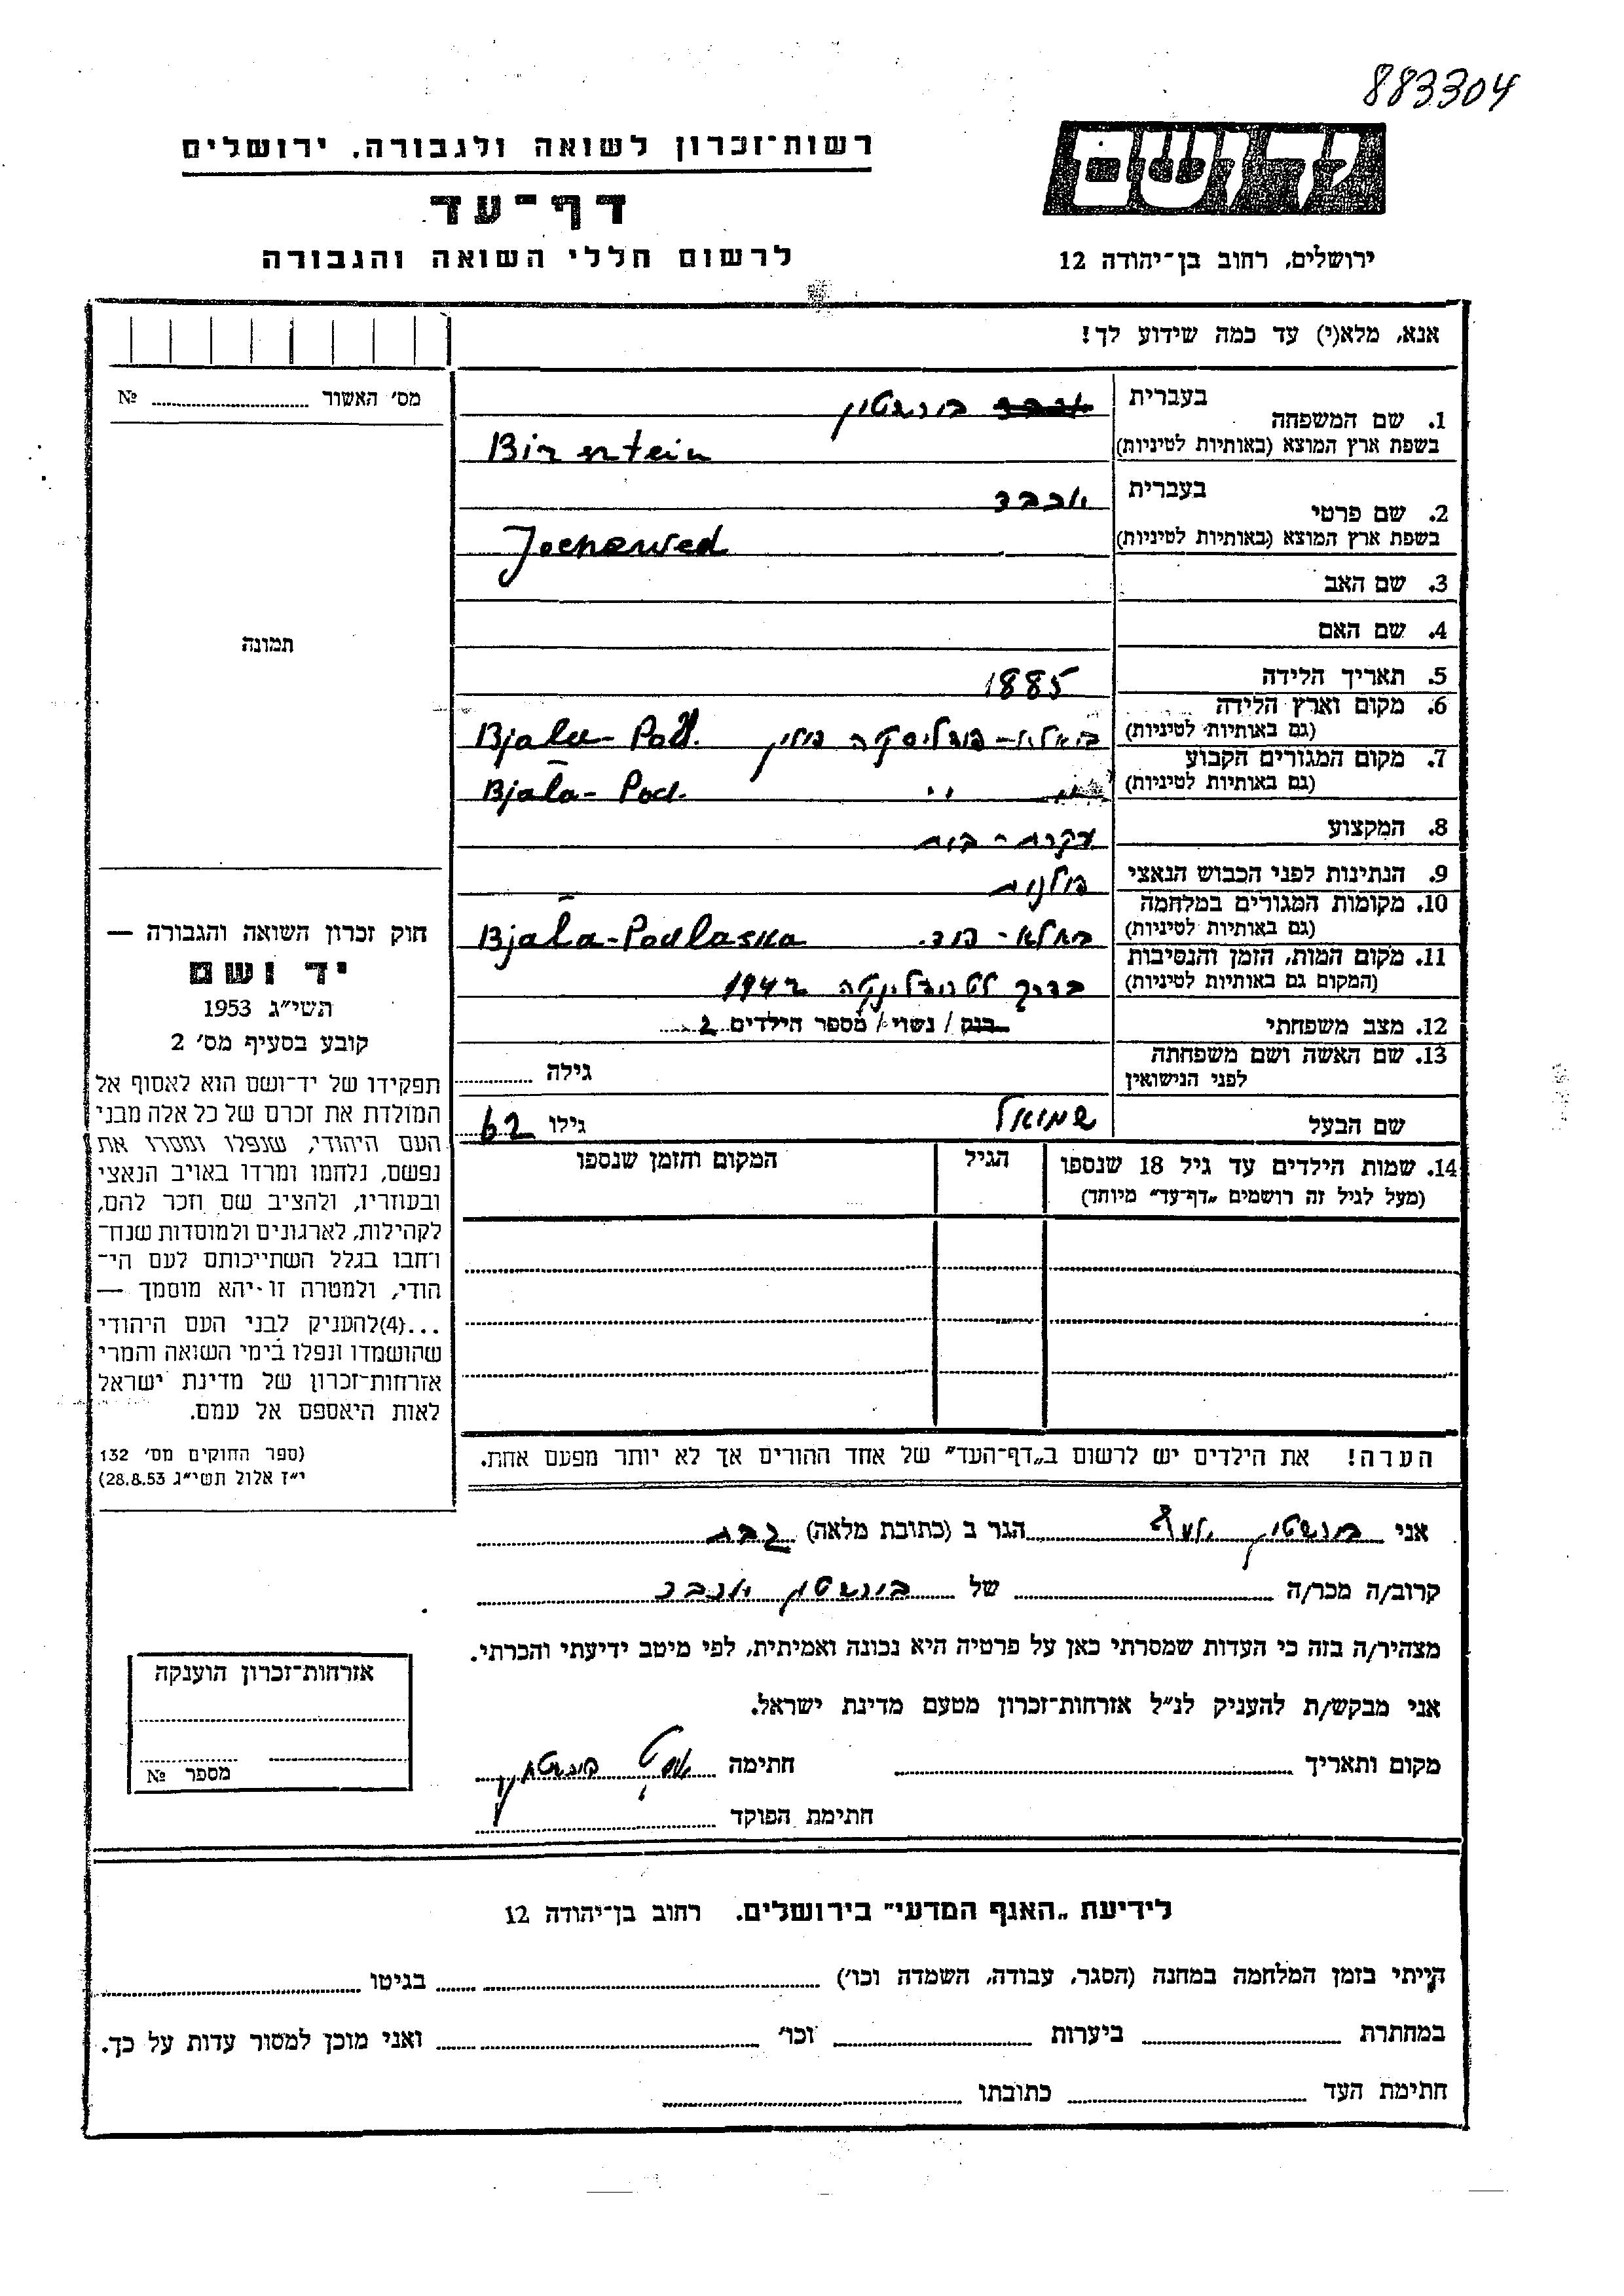 883304
יד ושם
רשות־זכרון לשואה ולגבורה, ירושלים
דף־עד
לרשום חללי השואה והגבורה
ירושלים, רחוב בן־יהודה 12
אנא, מלא(י) עד כמה שידוע לך!
מס׳ האשור № 
1. שם המשפחה בעברית בירנשטין
בשפת ארץ המוצא (באותיות לטיניות) Birentein
2. שם פרטי בעברית יוכבד
בשפת ארץ המוצא (באותיות לטיניות) Jochewed
3. שם האב
4. שם האם
תמונה
5. תאריך הלידה 1885
6. מקום וארץ הלידה
(גם באותיות לטיניות) ביאלא-פודליסקה פולין Bjala-Podl.
7. מקום המגורים הקבוע
(גם באותיות לטיניות) " " Bjala-Pod.
8. המקצוע עקרת-בית
9. הנתינות לפני הכבוש הנאצי פולנית
10. מקומות המגורים במלחמה
(גם באותיות לטיניות) ביאלא-פוד. Bjala-Podlaska
11. מקום המות, הזמן והנסיבות
(המקום גם באותיות לטיניות) בדרך לטרבלינקה 1942
12. מצב משפחתי רווק / נשוי / מספר הילדים 2
13. שם האשה ושם משפחתה
לפני הנישואין גילה
שם הבעל שמואל גילו 62
14. שמות הילדים עד גיל 18 שנספו
(מעל לגיל זה רושמים „דף־עד״ מיוחד)
הגיל
המקום והזמן שנספו
הערה! את הילדים יש לרשום ב„דף־העד״ של אחד ההורים אך לא יותר מפעם אחת.
חוק זכרון השואה והגבורה —
יד ושם
תשי״ג 1953
קובע בסעיף מס׳ 2
תפקידו של יד־ושם הוא לאסוף אל
המולדת את זכרם של כל אלה מבני
העם היהודי, שנפלו ומסרו את
נפשם, נלחמו ומרדו באויב הנאצי
ובעוזריו, ולהציב שם וזכר להם,
לקהילות, לארגונים ולמוסדות שנח־
רבו בגלל השתייכותם לעם הי־
הודי, ולמטרה זו יהא מוסמך —
...(4)להעניק לבני העם היהודי
שהושמדו ונפלו בימי השואה והמרי
אזרחות־זכרון של מדינת ישראל
לאות היאספם אל עמם.
(ספר החוקים מס׳ 132
י״ז אלול תשי״ג 28.8.53)
אני בירנשטין הגר ב (כתובת מלאה)
קרוב/ה מכר/ה של בירנשטין יוכבד
מצהיר/ה בזה כי העדות שמסרתי כאן על פרטיה היא נכונה ואמיתית, לפי מיטב ידיעתי והכרתי.
אני מבקש/ת להעניק לנ״ל אזרחות־זכרון מטעם מדינת ישראל.
מקום ותאריך חתימה
חתימת הפוקד
אזרחות־זכרון הוענקה
מספר №
לידיעת „האגף המדעי״ בירושלים. רחוב בן־יהודה 12
הייתי בזמן המלחמה במחנה (הסגר, עבודה, השמדה וכו׳) בגיטו
במחתרת ביערות וכו׳ ואני מוכן למסור עדות על כך.
חתימת העד כתובתו